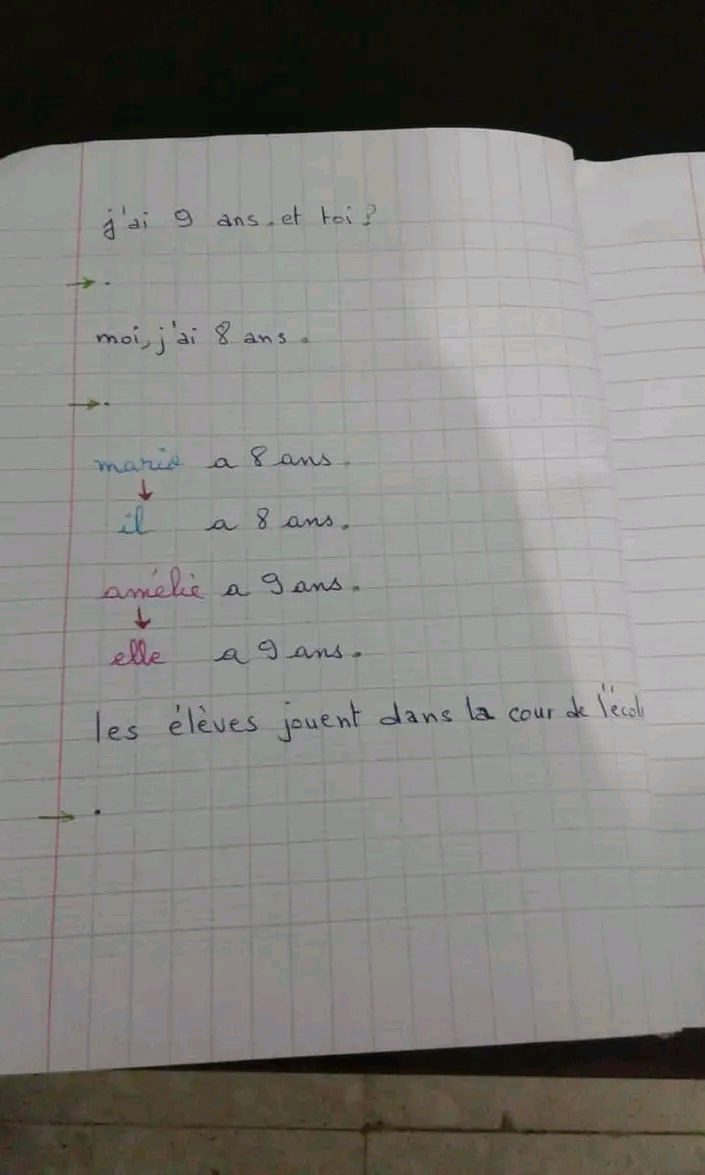 j'ai 9 ans. et toi?
→ .
moi, j'ai 8 ans.
→ .
a 8 ans.
↓
il a 8 ans.
amélie a 9 ans.
↓
elle a 9 ans.
les élèves jouent dans la cour de l'écol
→ .